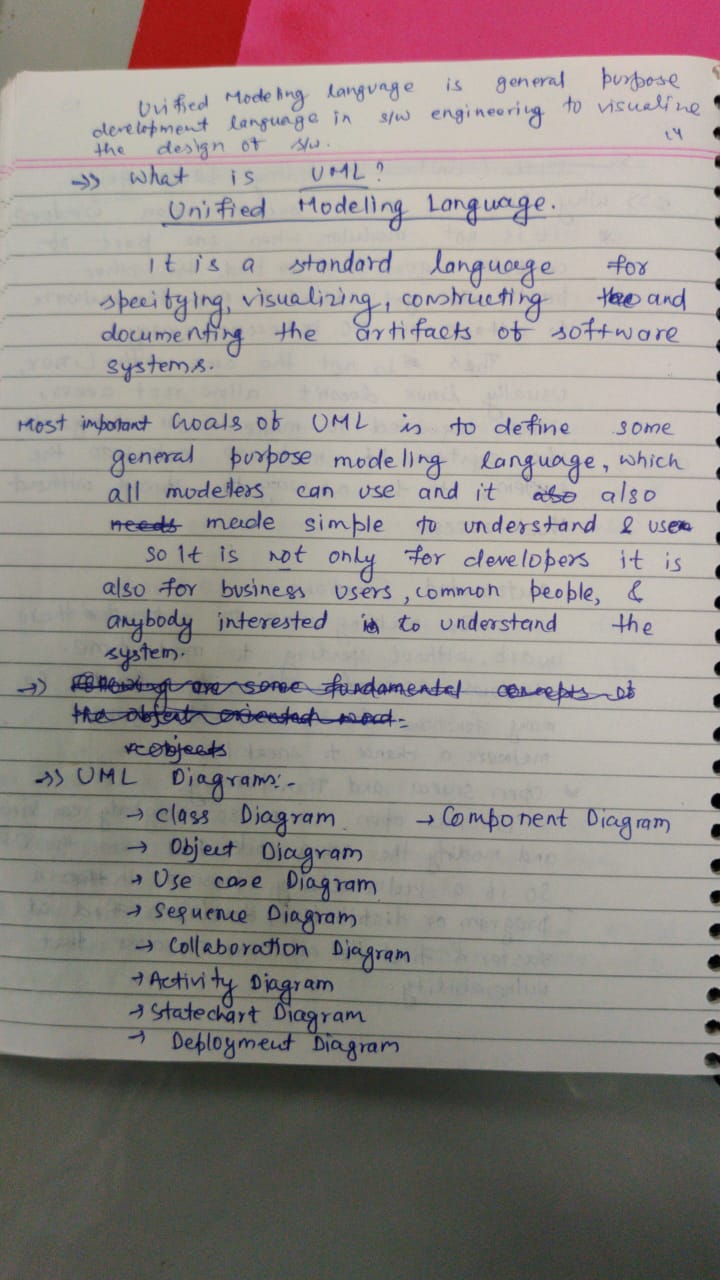 Unified Modeling language is general purpose
development language in s/w engineering to visualize
the design of s/w.
14
→>> What is UML?
Unified Modeling Language.
It is a standard language for
specifying, visualizing, constructing and
documenting the artifacts of software
systems.
Most important Goals of UML is to define some
general purpose modeling language, which
all modellers can use and it also also
needs made simple to understand & use
So It is not only for developers it is
also for business users, common people, &
anybody interested to understand the
system.
→) Following are some fundamental concepts of
the object oriented word:-
objects
→>> UML Diagrams:-
→ Class Diagram → Component Diagram
→ Object Diagram
→ Use case Diagram
→ Sequence Diagram
→ Collaboration Diagram
→ Activity Diagram
→ Statechart Diagram
→ Deployment Diagram